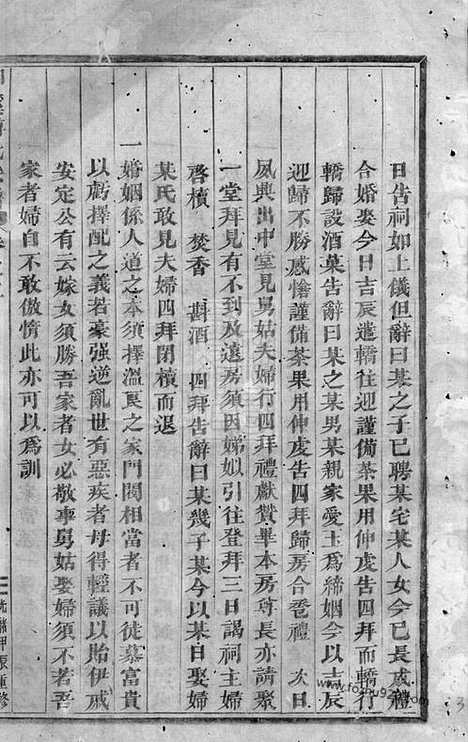 日告祠如上儀但辭曰某之子已聘某宅某人女今已長成禮
合婚娶今日吉辰遣轎往迎謹備茶果用伸虔告四拜而轎行
轎歸設酒菓告辭曰某之某男某親家愛玉為締姻今以吉辰
迎歸不勝感愴謹備茶果用伸虔告四拜歸房合巹禮 次日
夙興出中堂見舅姑夫婦行四拜禮獻贄畢本房尊長亦請聚
一堂拜見有不到及遠房須因娣姒引往登拜三日謁祠主婦
啓櫝 焚香 斟酒 四拜告辭曰某幾子某今以某日娶婦
某氏敢見夫婦四拜閉櫝而退
一婚姻係人道之本須擇溫良之家門閥相當者不可徒慕富貴
以虧擇配之義若豪强逆亂世有惡疾者毋得輕議以貽伊戚
安定公有云嫁女須勝吾家者女必敬事舅姑娶婦須不若吾
家者婦自不敢傲惰此亦可以為訓
甲辰重修
www.fozhu920.com
3